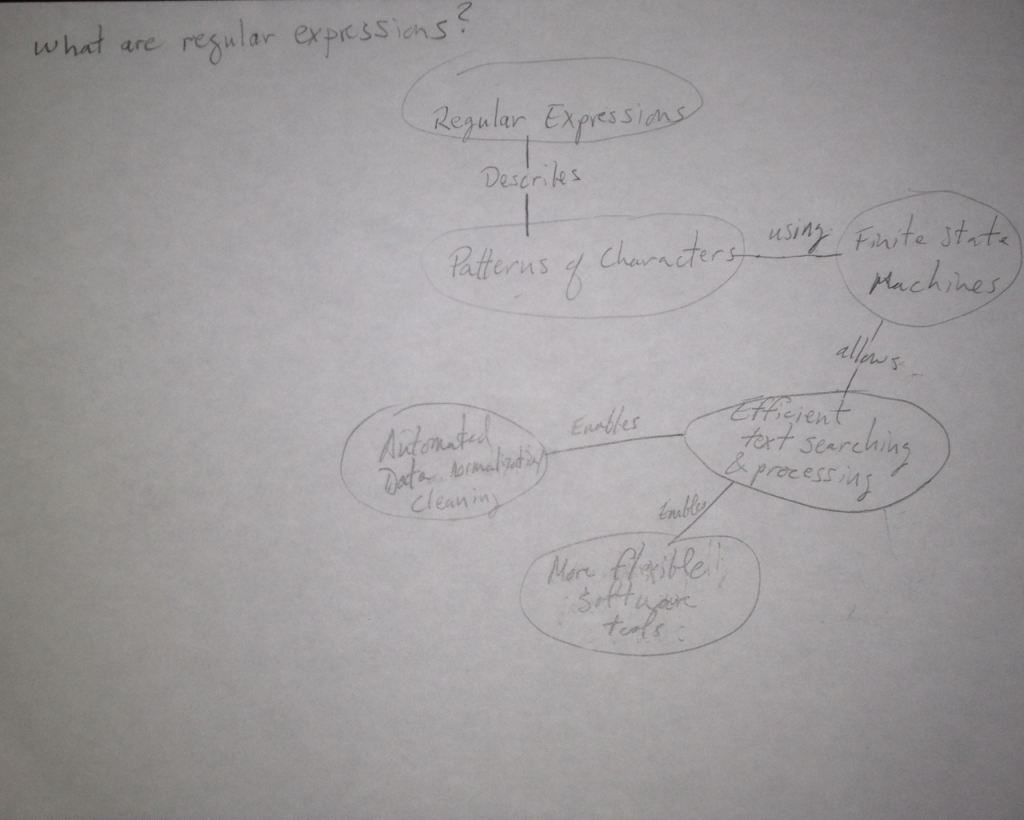 What are regular expressions?
Regular Expressions
Describes
Patterns of Characters
using
Finite State
Machines
allows
Efficient
text searching
& processing
Enables
Automated
Data normalization/
Cleaning
Enables
More flexible
Software
tools